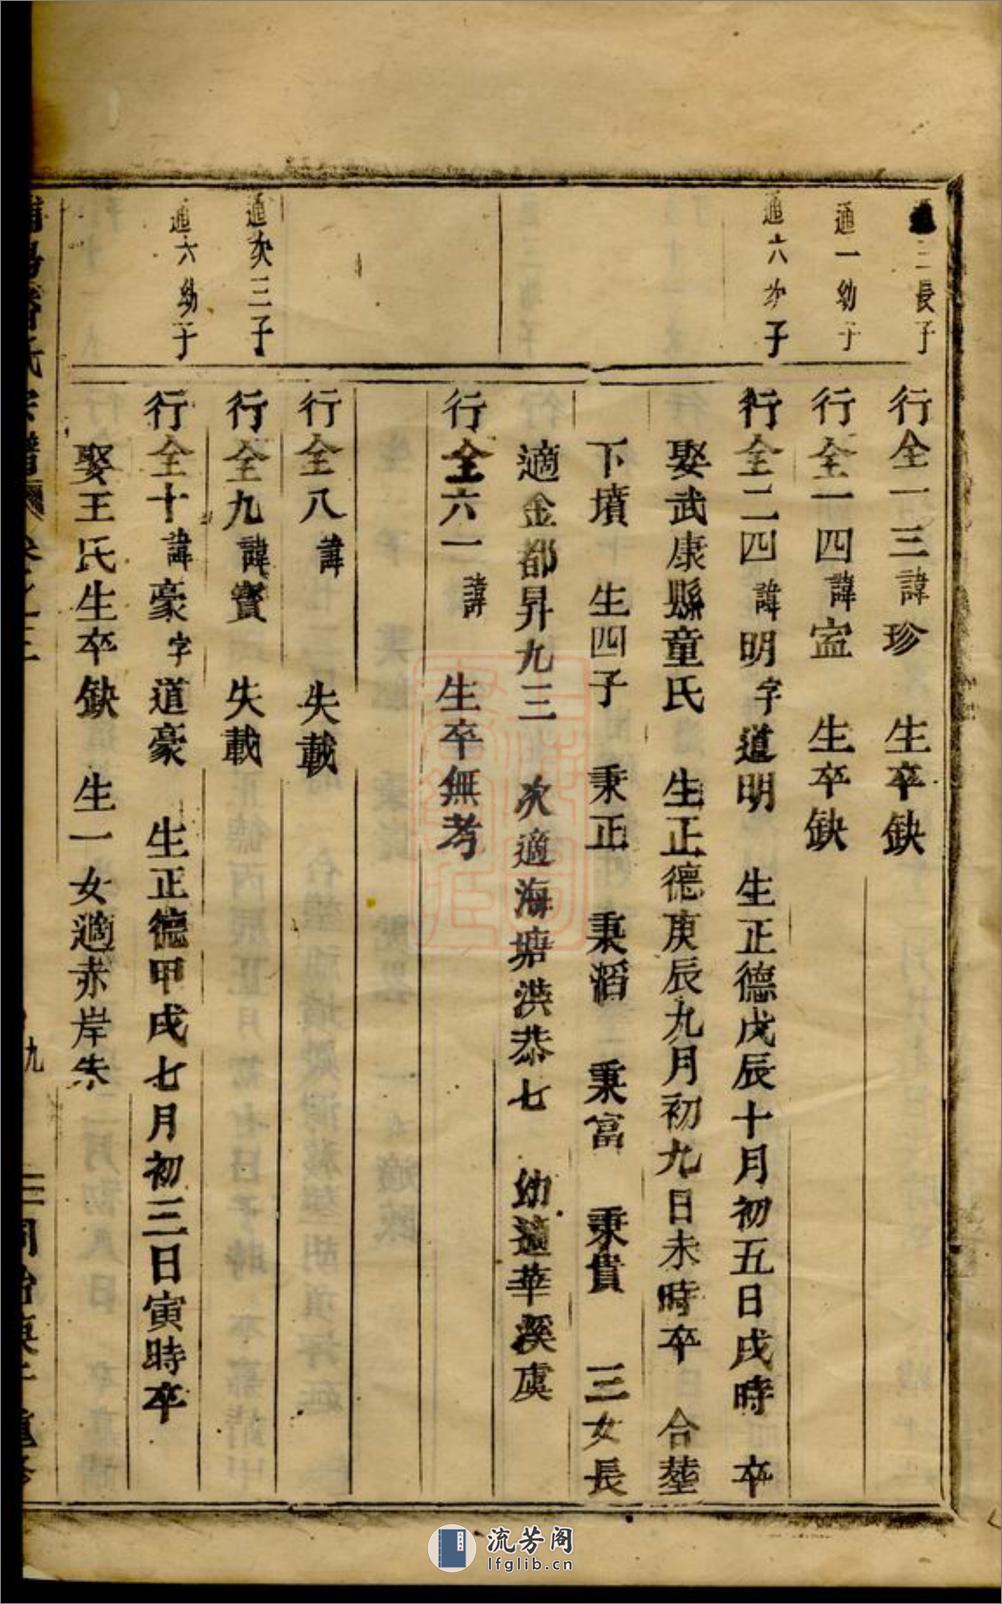 三長子
行全一三諱珍　生卒缺
通一幼子
行全一四諱　生卒缺
通六次子
行全二四諱明字道明　生正德戊辰十月初五日戌時　卒
娶武康縣童氏　生正德庚辰九月初九日未時卒　合塟
下墳　生四子　秉正　秉滔　秉富　秉貴　三女長
適金都昇九三　次適海塘洪恭七　幼適華溪虞
行全六一諱　生卒無考
行全八諱　失載
通次三子
行全九諱賓　失載
通六幼子
行全十諱豪字道豪　生正德甲戌七月初三日寅時卒
娶王氏生卒缺　生一女適赤岸朱
氏宗譜　卷之三　九　同治庚午重修
流芳阁
lfglib.cn